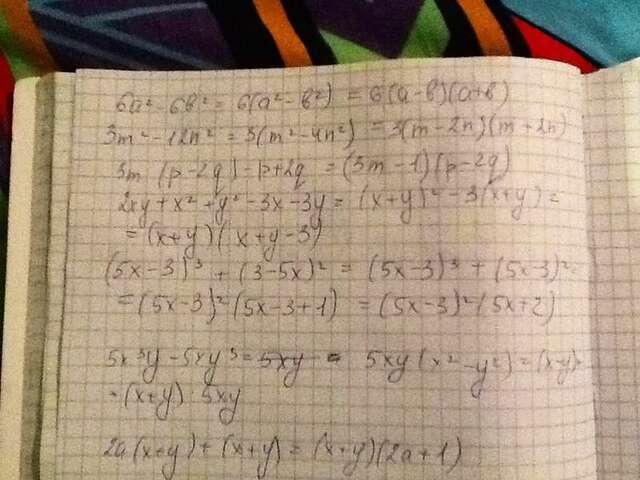 6a² - 6b² = 6(a² - b²) = 6(a-b)(a+b)
3m² - 12n² = 3(m² - 4n²) = 3(m - 2n)(m + 2n)
3m (p - 2q) - p + 2q = (3m - 1)(p - 2q)
2xy + x² + y² - 3x - 3y = (x+y)² - 3(x+y) =
= (x+y)(x+y-3)
(5x-3)³ + (3-5x)² = (5x-3)³ + (5x-3)² =
= (5x-3)²(5x-3+1) = (5x-3)²(5x+2)
5x³y - 5xy³ = 5xy = 5xy(x² - y²) = (x-y)·
·(x+y) 5xy
2a(x+y) + (x+y) = (x+y)(2a+1)